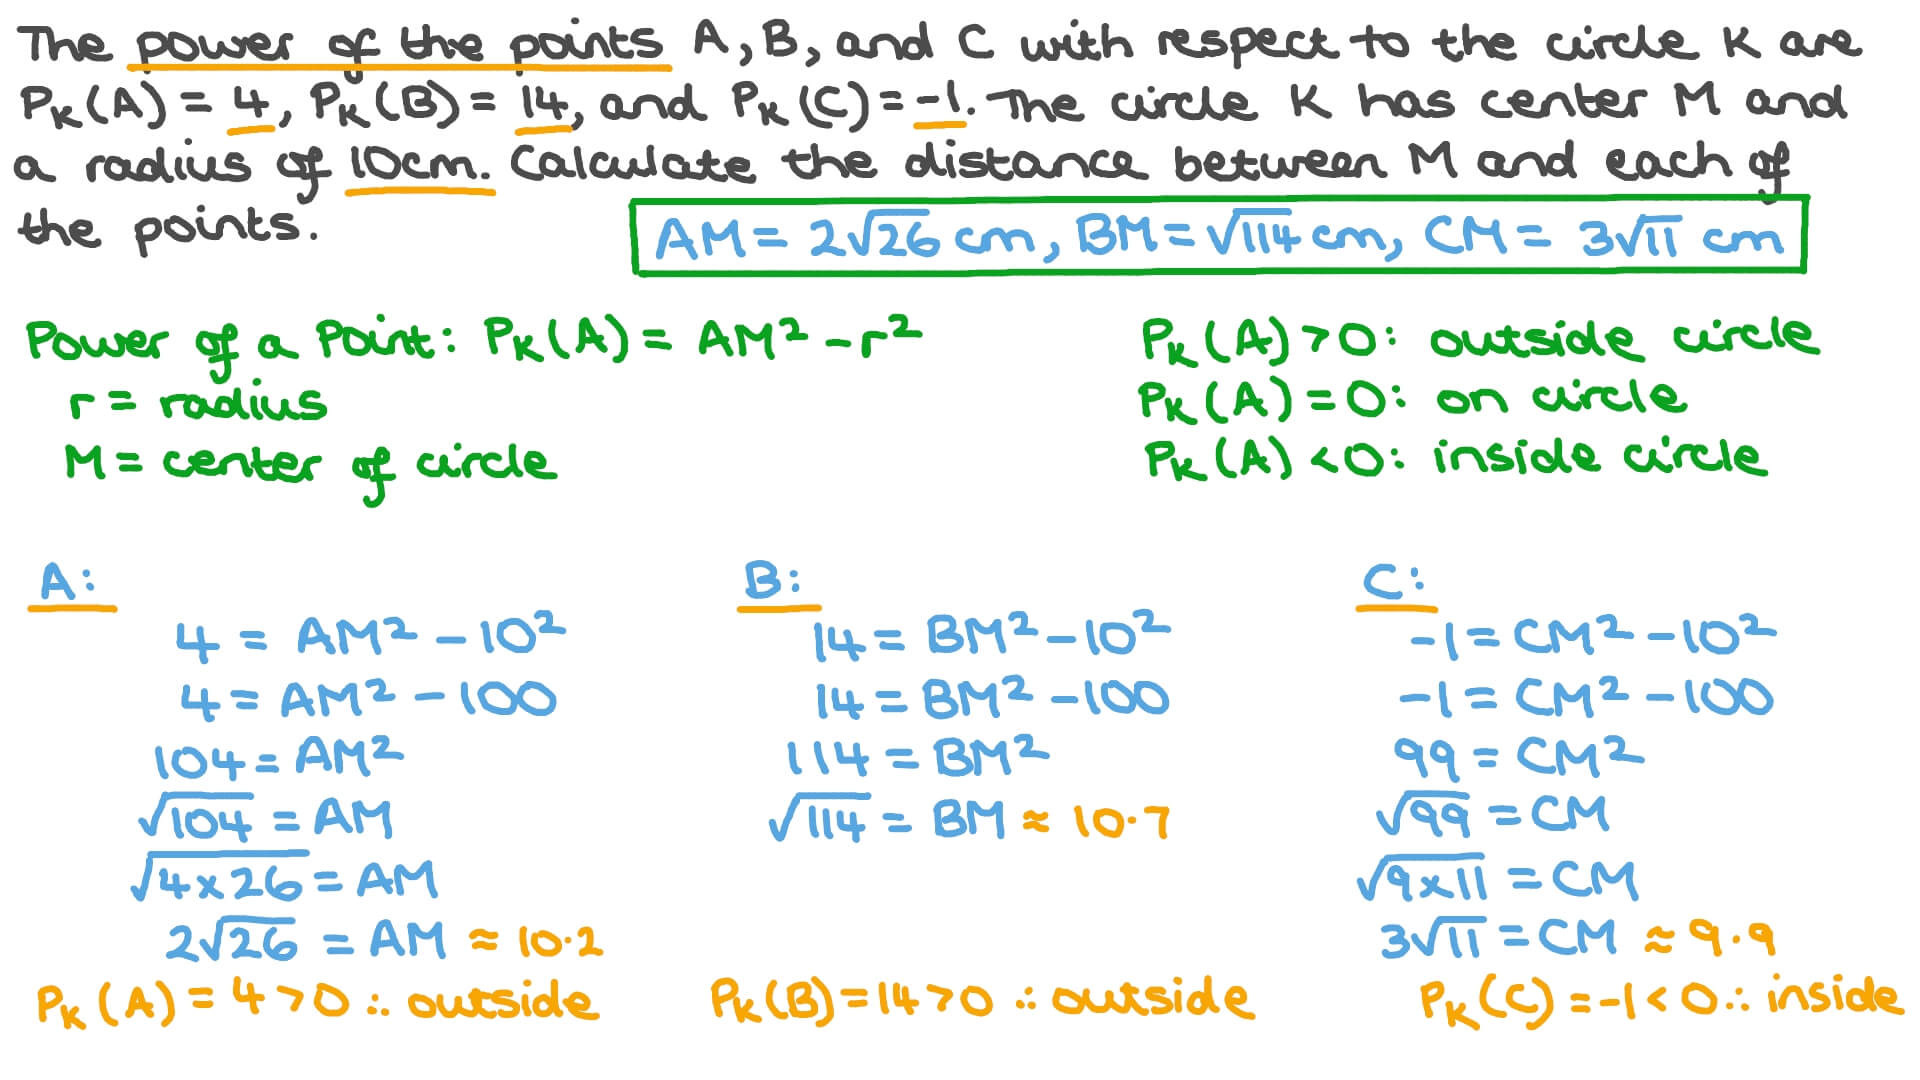 The power of the points A, B, and C with respect to the circle K are
P_K(A) = 4, P_K(B) = 14, and P_K(C) = -1. The circle K has center M and
a radius of 10cm. Calculate the distance between M and each of
the points.
AM = 2√26 cm, BM = √114 cm, CM = 3√11 cm
Power of a Point: P_K(A) = AM² - r²
r = radius
M = center of circle
P_K(A) > 0: outside circle
P_K(A) = 0: on circle
P_K(A) < 0: inside circle
A:
4 = AM² - 10²
4 = AM² - 100
104 = AM²
√104 = AM
√4×26 = AM
2√26 = AM ≈ 10.2
P_K(A) = 4 > 0 ∴ outside
B:
14 = BM² - 10²
14 = BM² - 100
114 = BM²
√114 = BM ≈ 10.7
P_K(B) = 14 > 0 ∴ outside
C:
-1 = CM² - 10²
-1 = CM² - 100
99 = CM²
√99 = CM
√9×11 = CM
3√11 = CM ≈ 9.9
P_K(C) = -1 < 0 ∴ inside